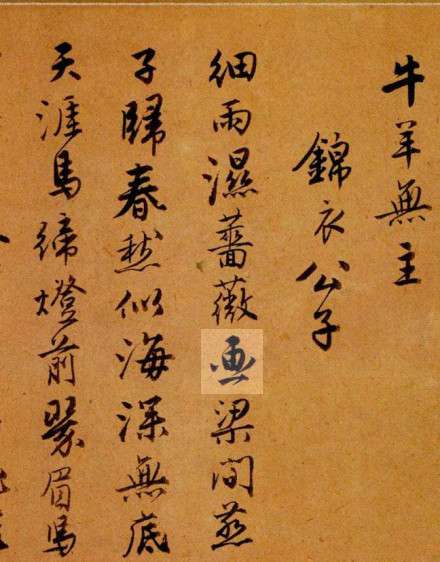 牛羊無主
錦衣公子
細雨濕薔薇画梁間燕
子歸春愁似海深無底
天涯馬締燈前翠眉馬